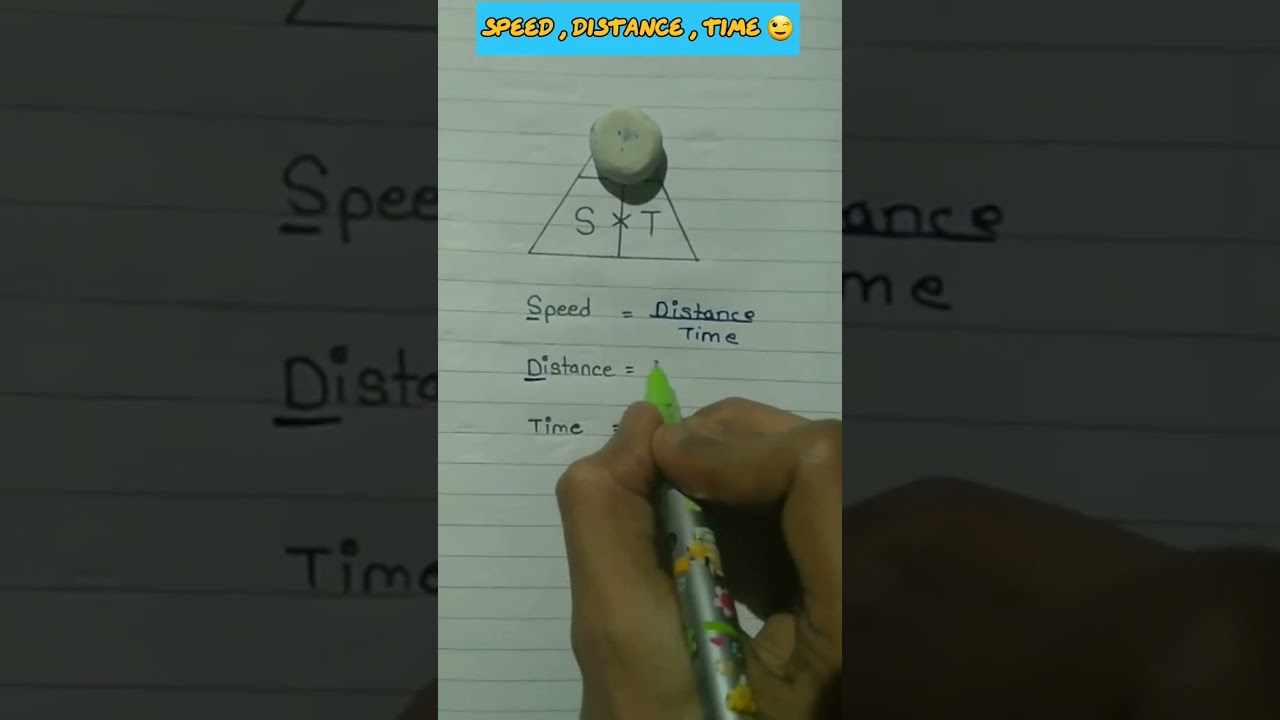 SPEED , DISTANCE , TIME 😉
S × T
Speed = Distance
Time
Distance =
Time =